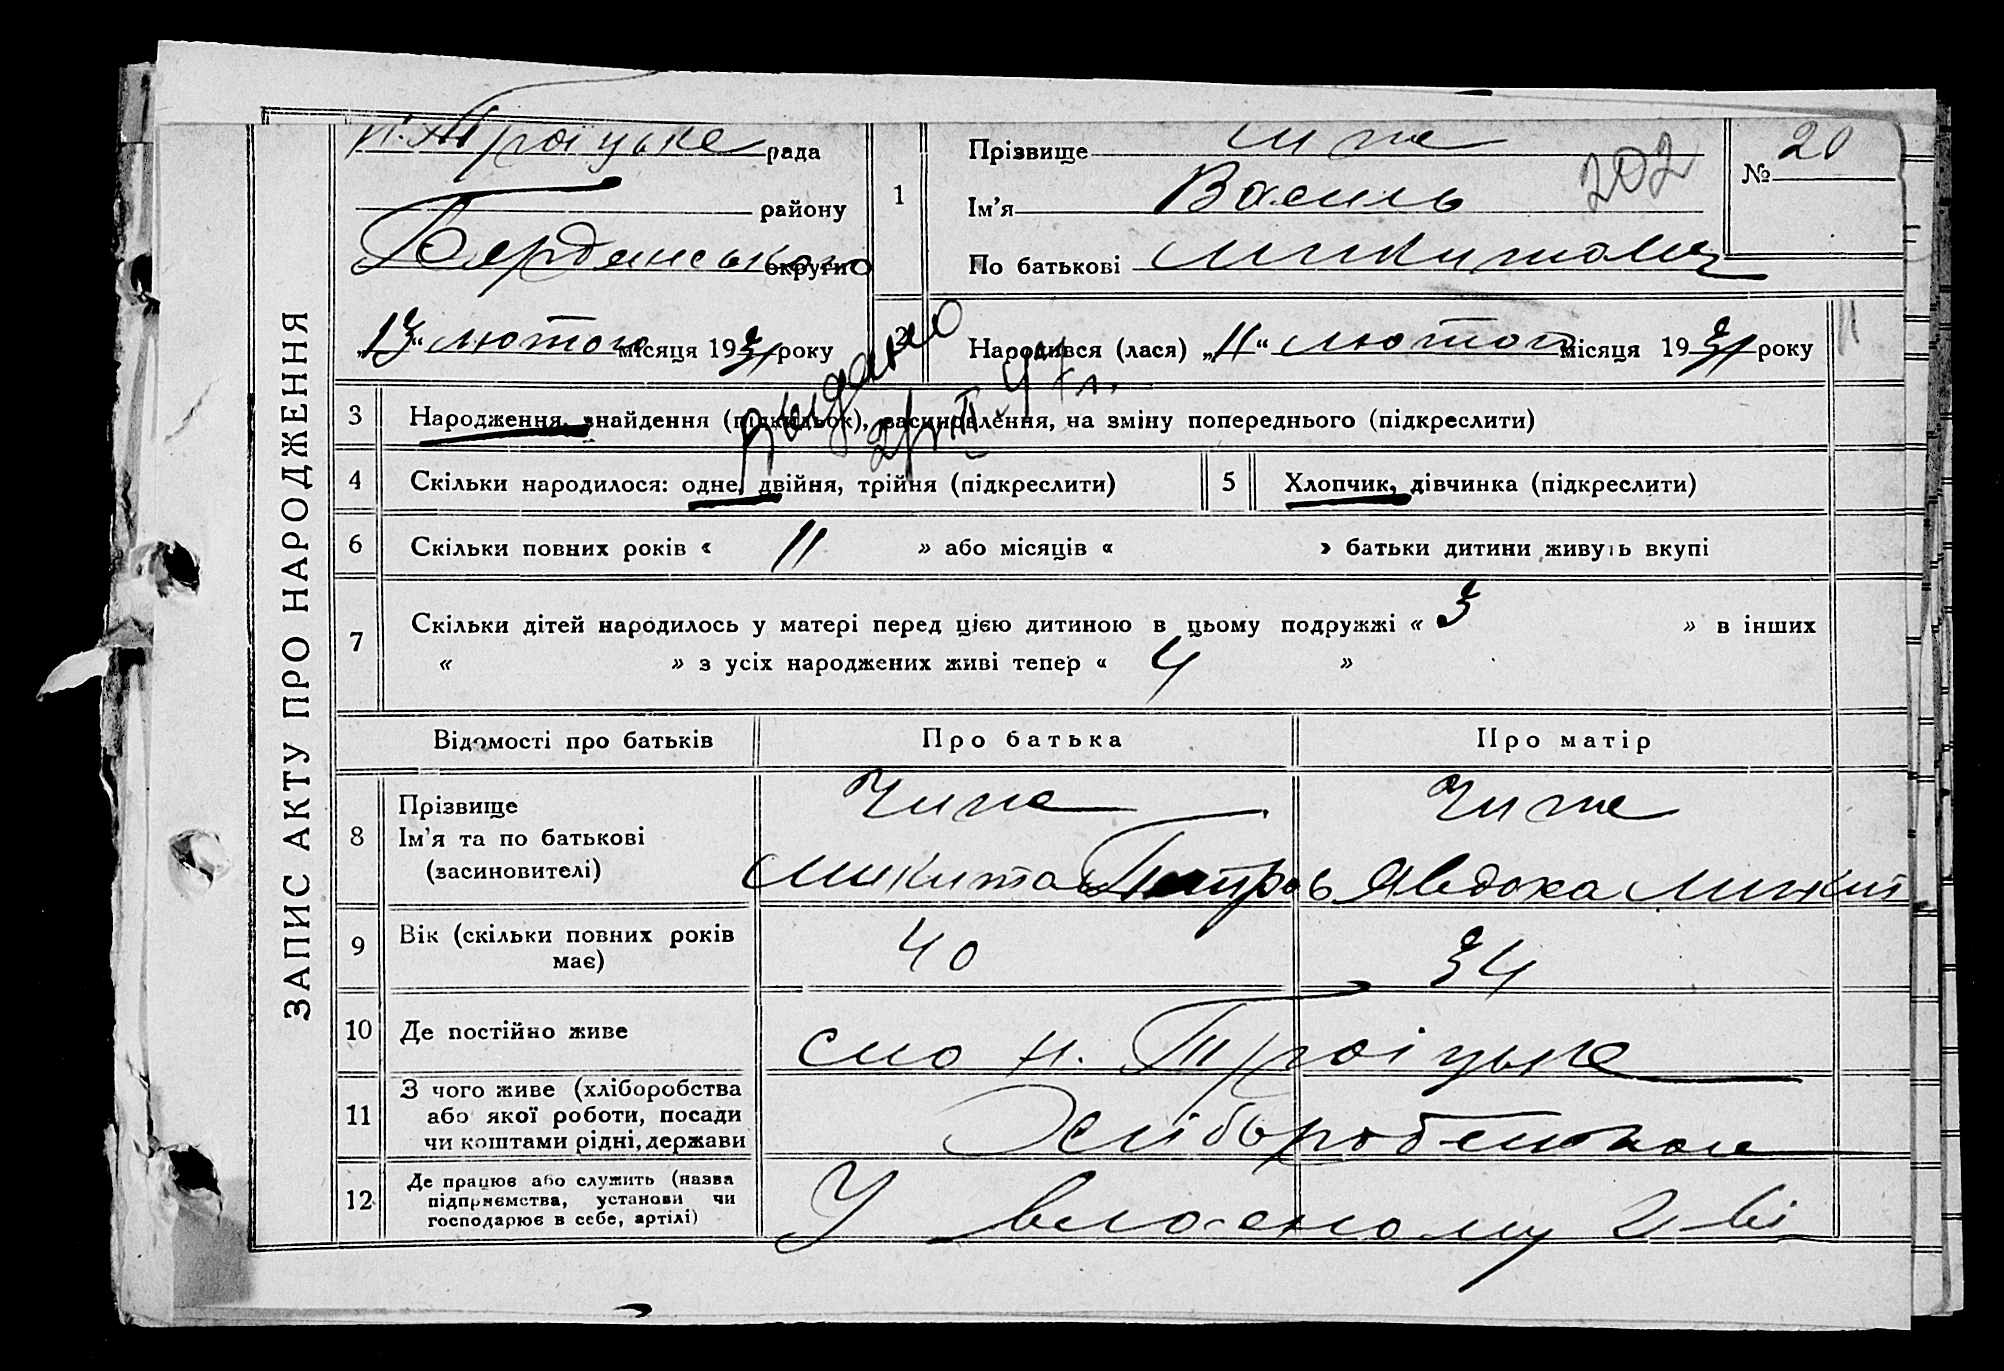 ЗАПИС АКТУ ПРО НАРОДЖЕННЯ
н. Троіцьке рада
району
Бердянського округи
„13“ лютого місяця 1931 року
1
Прізвище
Ім’я Василь
По батькові Микитович
202
№ 20
2
Народився (лася) „11“ лютого місяця 1931 року
11
Выдано
3 Народження, знайдення (підкидьок), засиновлення, на зміну попереднього (підкреслити)
4 Скільки народилося: одне, двійня, трійня (підкреслити) 5 Хлопчик, дівчинка (підкреслити)
6 Скільки повних років « 11 » або місяців « » батьки дитини живуть вкупі
7 Скільки дітей народилось у матері перед цією дитиною в цьому подружжі « 3 » в інших
« » з усіх народжених живі тепер « 4 »
Відомості про батьків Про батька Про матір
8 Прізвище
Ім’я та по батькові
(засиновителі)
Микита Петров Явдоха Микит
9 Вік (скільки повних років
має)
40 34
10 Де постійно живе
село н. Троіцьке
11 З чого живе (хліборобства
або якої роботи, посади
чи коштами рідні, держави
Хлібороб
12 Де працює або служить (назва
підприємства, установи чи
господарює в себе, артілі)
У власному